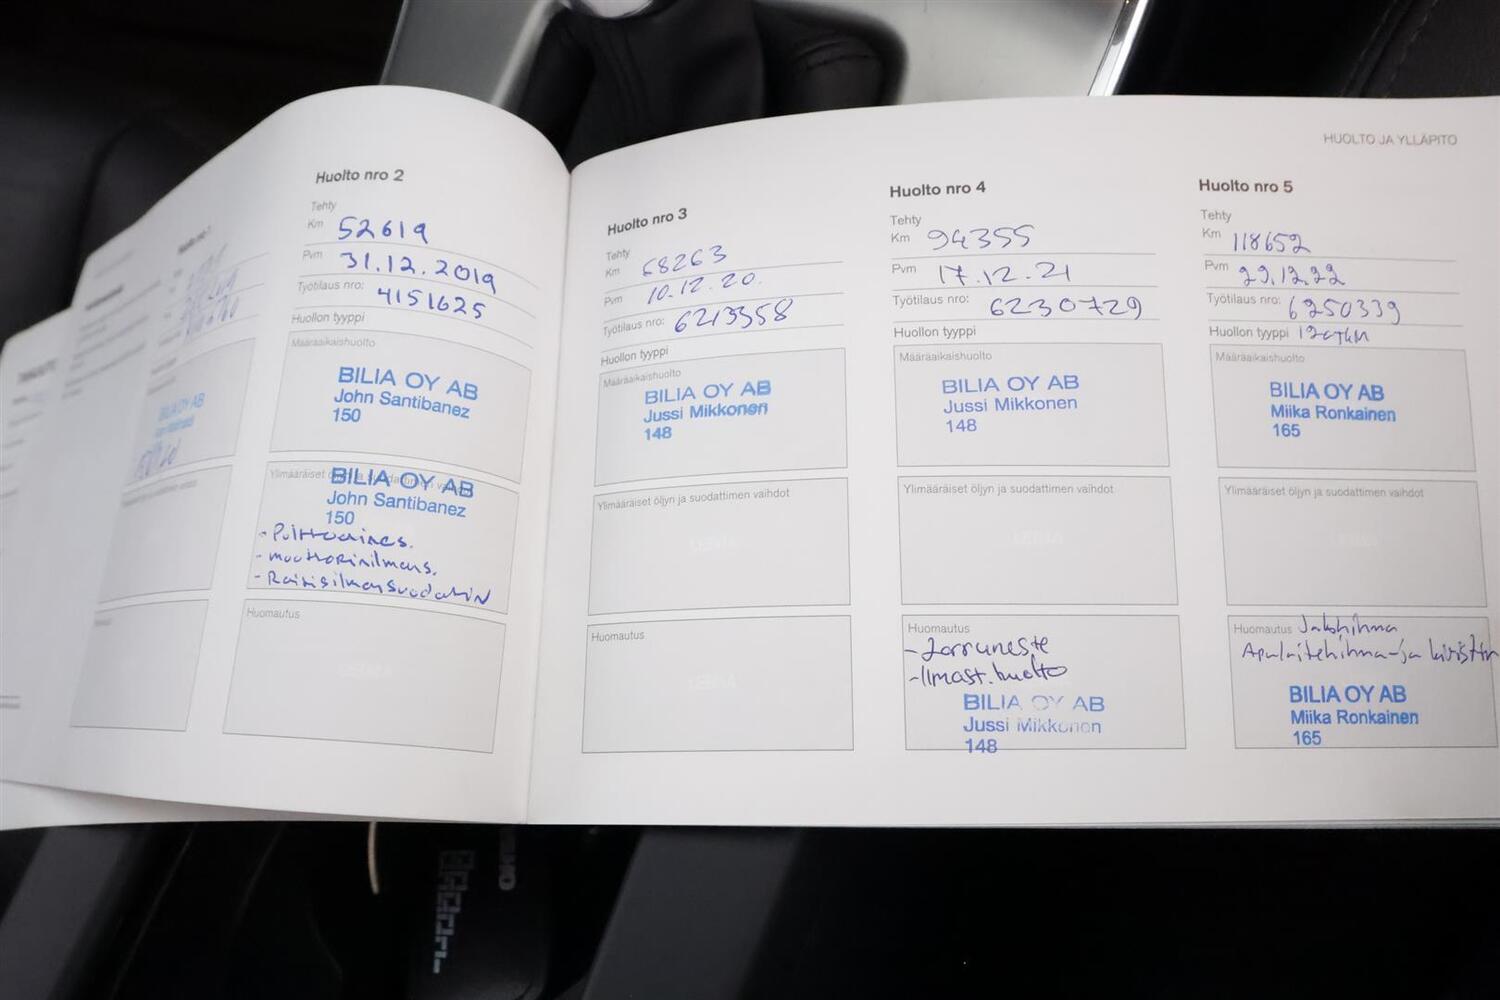 HUOLTO JA YLLÄPITO
BILIA OY AB
Huolto nro 2
Tehty
Km 52619
Pvm 31.12.2019
Työtilaus nro: 4151625
Huollon tyyppi
Määräaikaishuolto
BILIA OY AB
John Santibanez
150
Ylimääräiset öljyn ja suodattimen vaihdot
BILIA OY AB
John Santibanez
150
- Polttoaines.
- moottorinilmans.
- Raitisilmansuodatin
Huomautus
Huolto nro 3
Tehty
Km 68263
Pvm 10.12.20.
Työtilaus nro: 6213358
Huollon tyyppi
Määräaikaishuolto
BILIA OY AB
Jussi Mikkonen
148
Ylimääräiset öljyn ja suodattimen vaihdot
Huomautus
Huolto nro 4
Tehty
Km 94355
Pvm 17.12.21
Työtilaus nro: 6230729
Huollon tyyppi
Määräaikaishuolto
BILIA OY AB
Jussi Mikkonen
148
Ylimääräiset öljyn ja suodattimen vaihdot
Huomautus
- Jarruneste
- Ilmast. huolto
BILIA OY AB
Jussi Mikkonen
148
Huolto nro 5
Tehty
Km 118652
Pvm 29.12.22
Työtilaus nro: 6250339
Huollon tyyppi 120tkm
Määräaikaishuolto
BILIA OY AB
Miika Ronkainen
165
Ylimääräiset öljyn ja suodattimen vaihdot
Huomautus Jakohihna
Apulaitehihna-ja kiristin
BILIA OY AB
Miika Ronkainen
165